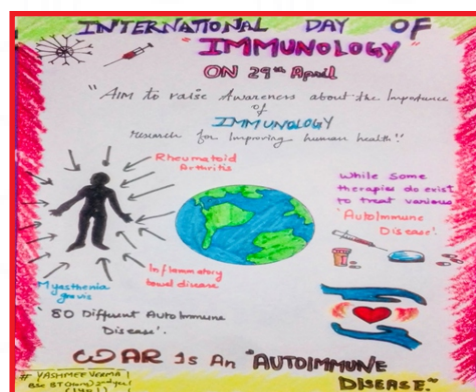 INTERNATIONAL DAY OF
"IMMUNOLOGY"
ON 29th April
"AIM to raise Awareness about the Importance
of
IMMUNOLOGY
research for Improving human health!!
Rheumatoid
Arthritis
Myasthenia
gravis
Inflammatory
bowel disease
80 Different AutoImmune
Disease'.
While Some
therapies do exist
to treat various
'AutoImmune
Disease'.
WAR Is An "AUTOIMMUNE
DISEASE"
# YASHMEE VERMA